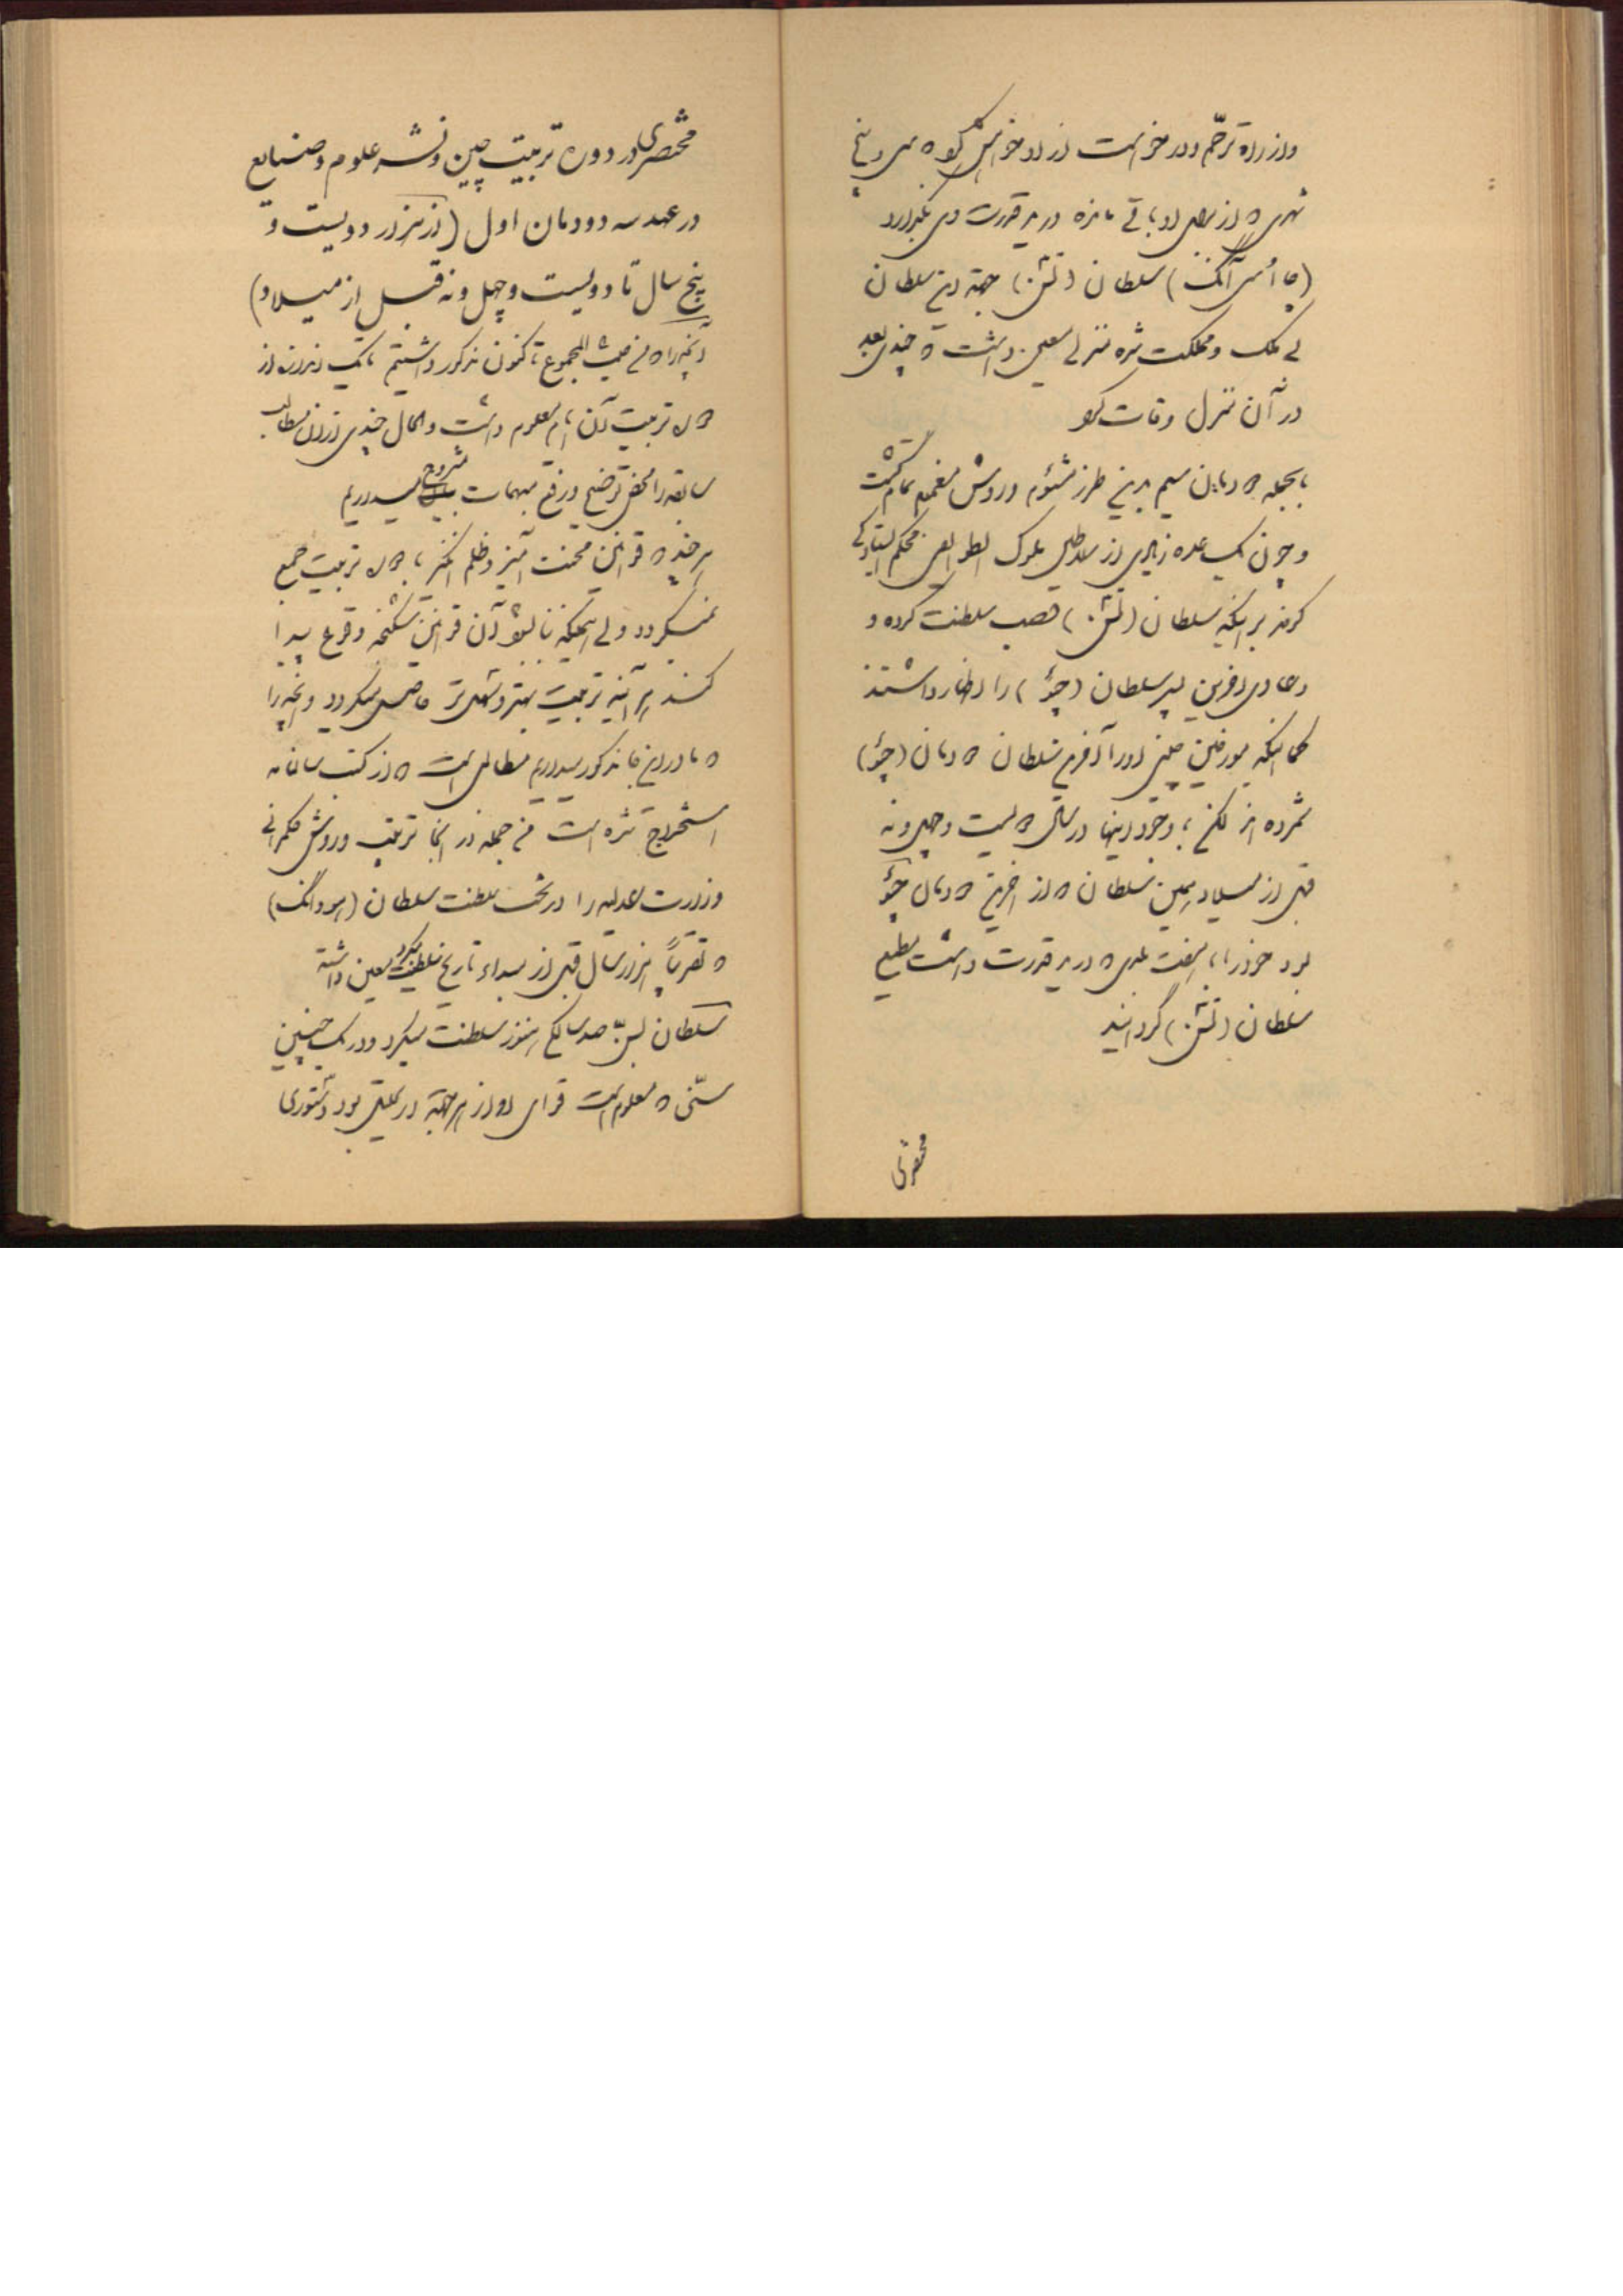 و از راه ترحّم و درخواست از او خواهش کرد که سی و پنج
شهری که از برای او باقی مانده در ید قدرت وی بگذارد
(چا اُسی آنگ) سلطان (تسن) جهة این سلطان
بی ملک و مملکت شده منزلی معین داشت که چندی بعد
در آن منزل وفات کرد
بالجمله دودمان سیم بدین طرز مشئوم و روش مغموم تمام گشت
و چون یک عده زیادی از سلاطین ملوک الطوایفی محکم ایستادگی
کردند بر اینکه سلطان (تسن) غصب سلطنت کرده و
دعاوی آخرین پسر سلطان (چئو) را اظهار داشتند
کما اینکه مورخین چینی او را آخرین سلطان دودمان (چئو)
شمرده اند لکن با وجود اینها در سال دویست و چهل و نه
قبل از میلاد همین سلطان که از آخرین دودمان چئو
بود خود را با هفت بلدی که در ید قدرت داشت مطیع
سلطان (تسن) گردانید
مختصری
مختصری در دوره تربیت چین و نشر علوم و صنایع
در عهد سه دودمان اول (از هزار و دویست و
پنج سال تا دویست و چهل و نه قبل از میلاد)
آنچه را که من حیث المجموع تا کنون مذکور داشتیم یک اندازه از
حال تربیت آن ایام معلوم داشت و الحال چندی از آن مطالب
سابقه را محض توضیح و رفع مبهمات مشروح میداریم
هر چند که قوانین محنت آمیز و ظلم انگیز با حال تربیت جمع
نمیگردد ولی همینکه آن قوانین شکنجه وقوع پیدا
کنند هر آینه تربیت بهتر و سهل تر حاصل میگردد و آنچه را
که ما در این جا مذکور میداریم مطالبی است که از کتب سالنامه
استخراج شده است من جمله در آنجا ترتیب و روش حکمرانی
وزارت عدلیه را در تحت سلطنت سلطان (مووانگ)
که تقریباً هزار سال قبل از مبداء تاریخ سلطنت میکرد معین داشته
سلطان بسنّ صد سالگی هنوز سلطنت میکرد و در یک چنین
سنّی که معلوم است قوای او از هر جهة در تحلیل بود دستوری